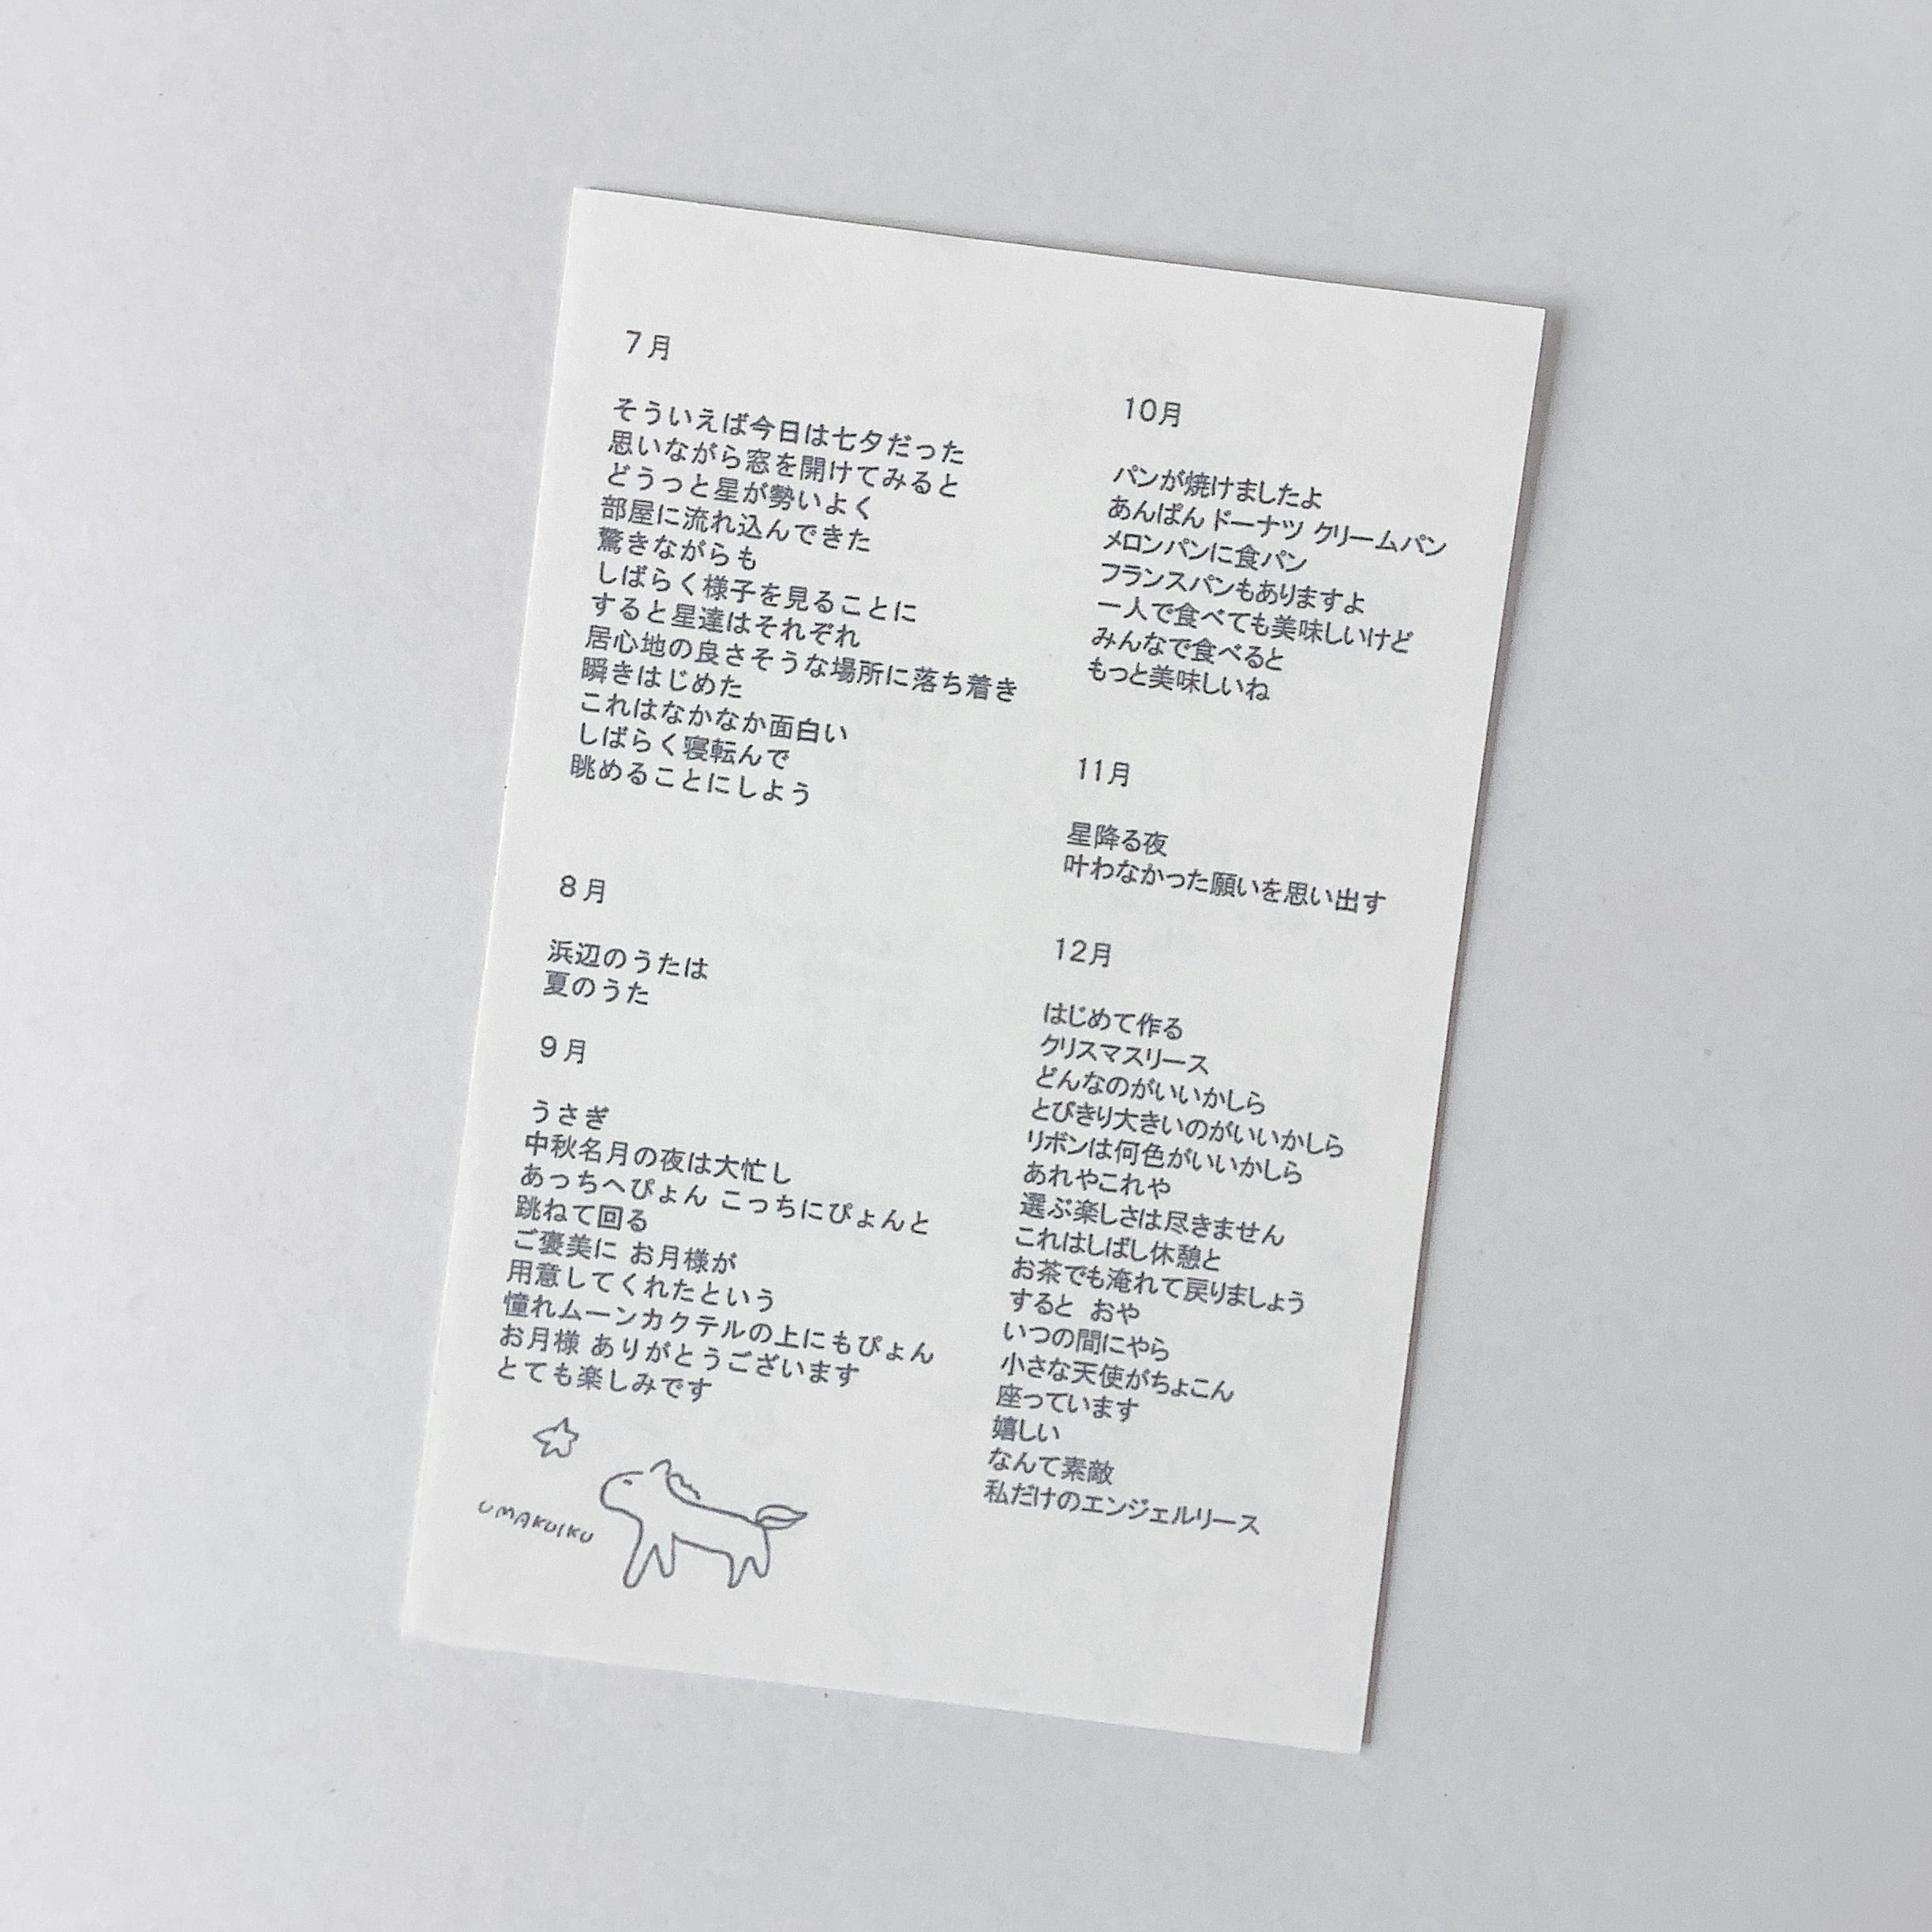 7月
そういえば今日は七夕だった
思いながら窓を開けてみると
どうっと星が勢いよく
部屋に流れ込んできた
驚きながらも
しばらく様子を見ることに
すると星達はそれぞれ
居心地の良さそうな場所に落ち着き
瞬きはじめた
これはなかなか面白い
しばらく寝転んで
眺めることにしよう
8月
浜辺のうたは
夏のうた
9月
うさぎ
中秋名月の夜は大忙し
あっちへぴょん こっちにぴょんと
跳ねて回る
ご褒美に お月様が
用意してくれたという
憧れムーンカクテルの上にもぴょん
お月様 ありがとうございます
とても楽しみです
UMAKUIKU
10月
パンが焼けましたよ
あんぱん ドーナツ クリームパン
メロンパンに食パン
フランスパンもありますよ
一人で食べても美味しいけど
みんなで食べると
もっと美味しいね
11月
星降る夜
叶わなかった願いを思い出す
12月
はじめて作る
クリスマスリース
どんなのがいいかしら
とびきり大きいのがいいかしら
リボンは何色がいいかしら
あれやこれや
選ぶ楽しさは尽きません
これはしばし休憩と
お茶でも淹れて戻りましょう
すると おや
いつの間にやら
小さな天使がちょこん
座っています
嬉しい
なんて素敵
私だけのエンジェルリース